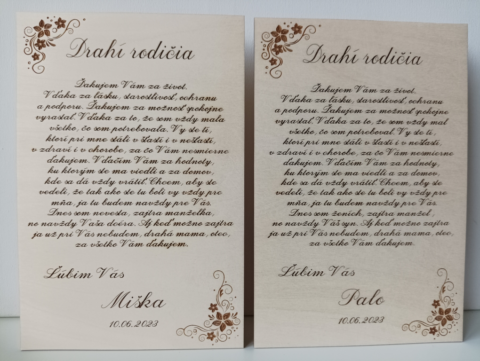 Drahí rodičia
Ďakujem Vám za život.
Vďaka za lásku, starostlivosť, ochranu
a podporu. Ďakujem za možnosť pokojne
vyrastať. Vďaka za to, že som vždy mala
všetko, čo som potrebovala. Vy ste tí,
ktorí pri mne stáli v šťastí i v nešťastí,
v zdraví i v chorobe, za čo Vám nesmierne
ďakujem. Vďačím Vám za hodnoty,
ku ktorým ste ma viedli a za domov,
kde sa dá vždy vrátiť. Chcem, aby ste
vedeli, že tak ako ste tu boli vy vždy pre
mňa, ja tu budem navždy pre Vás.
Dnes som nevesta, zajtra manželka,
no navždy Vaša dcéra. Aj keď možno zajtra
ja už pri Vás nebudem, drahá mama, otec,
za všetko Vám ďakujem.
Ľúbim Vás
Miška
10.06.2023
Drahí rodičia
Ďakujem Vám za život.
Vďaka za lásku, starostlivosť, ochranu
a podporu. Ďakujem za možnosť pokojne
vyrastať. Vďaka za to, že som vždy mal
všetko, čo som potreboval. Vy ste tí,
ktorí pri mne stáli v šťastí i v nešťastí,
v zdraví i v chorobe, za čo Vám nesmierne
ďakujem. Vďačím Vám za hodnoty,
ku ktorým ste ma viedli a za domov,
kde sa dá vždy vrátiť. Chcem, aby ste
vedeli, že tak ako ste tu boli vy vždy pre
mňa, ja tu budem navždy pre Vás.
Dnes som ženích, zajtra manžel,
no navždy Váš syn. Aj keď možno zajtra
ja už pri Vás nebudem, drahá mama, otec,
za všetko Vám ďakujem.
Ľúbim Vás
Paľo
10.06.2023